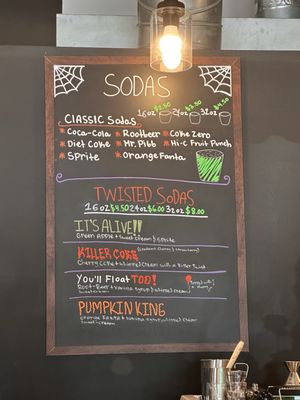 SODAS
CLASSIC Sodas 16oz $2.50 24oz $3.50 32oz $4.50
* Coca-Cola * RootBeer * Coke Zero
* Diet Coke * Mr. Pibb * Hi-C Fruit Punch
* Sprite * Orange Fanta
TWISTED SODAS
16oz $4.50 24oz $6.00 32oz $8.00
IT'S ALIVE!!
Green Apple + sweet cream & sprite
KILLER COKE
Cherry Coke + whipped cream with a killer twist
You'll Float TOO!
Root-Beer + vanilla syrup & whipped cream
sweetcream
PUMPKIN KING
Orange Fanta + vanilla syrup whipped cream
sweet-cream